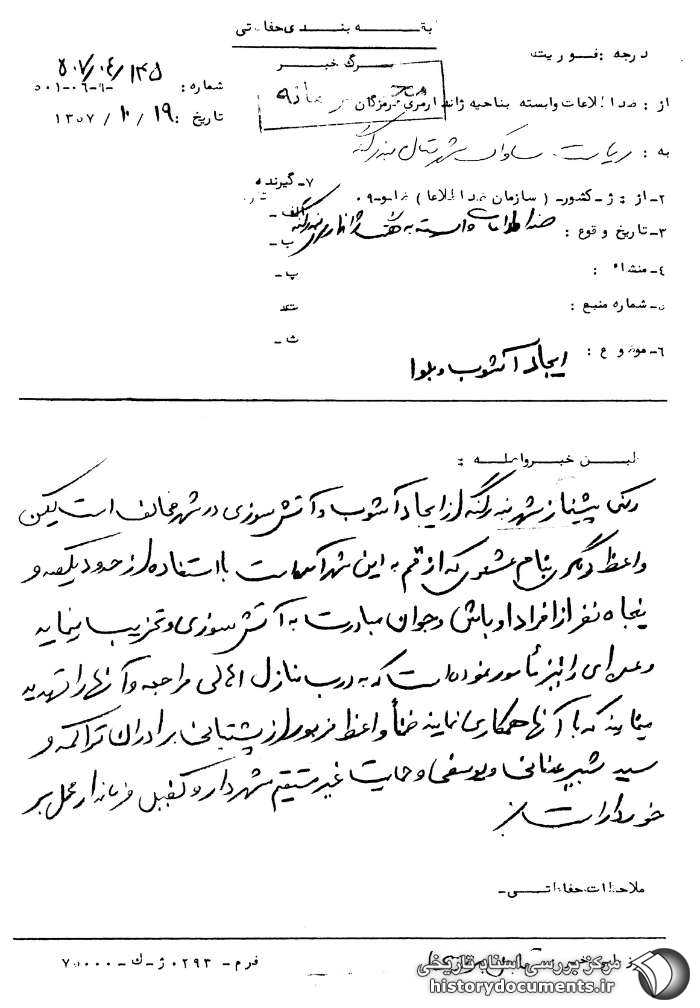 بقـــه بنـــدی حفا تی
درجه : فــوریت
ـرگ خبـــر
محرمانه
شماره : ۵۰۱-۰۶-۱-
۵۰۷/۰۴/۱۴۵
از : ضد اطلاعات وابسته بناحیه ژاندارمری هرمزگان
تاریخ : ۱۹ / ۱۰ / ۱۳۵۷
به : ریاست ساواک شهرستان بندرلنگه
۷- گیرنده
۲- از : ژ - کشور - ( سازمان ضد اطلاعا ) ۰۹
الف -
۳- تاریخ وقوع :
ضداطلاعات وابسته به هنگ ژاندارمری بندرلنگه
ب -
۴- منشاء :
پ -
۵- شماره منبع :
ت -
ث -
۶- موضوع :
ایجاد آشوب و بلوا
متـن خبـر واصلـه :
پیشنماز شهر بندرلنگه از ایجاد آشوب و آتش سوزی در شهر مخالف است لیکن
واعظ دیگری بنام که از قم به این شهر آمده است با استفاده از حدود یکصد و
پنجاه نفر از افراد اوباش و جوان مبادرت به آتش سوزی و تخریب مینماید
و عده ای را نیز مأمور نموده است که به درب منازل اهالی مراجعه و آنها را تهدید
مینمایند که با آنها همکاری نمایند ضمناً واعظ مزبور از پشتیبانی برادران تراکمه و
سید شبیر عدنانی و یوسفی و حمایت غیر مستقیم شهردار و کفیل فرماندار محل بر
خوردار است
ملاحظات حفاظتـــی-
فرم - ۰۲۹۳ ژ - ك - ۷۰۰۰۰
مرکز بررسی اسناد تاریخی
historydocuments.ir